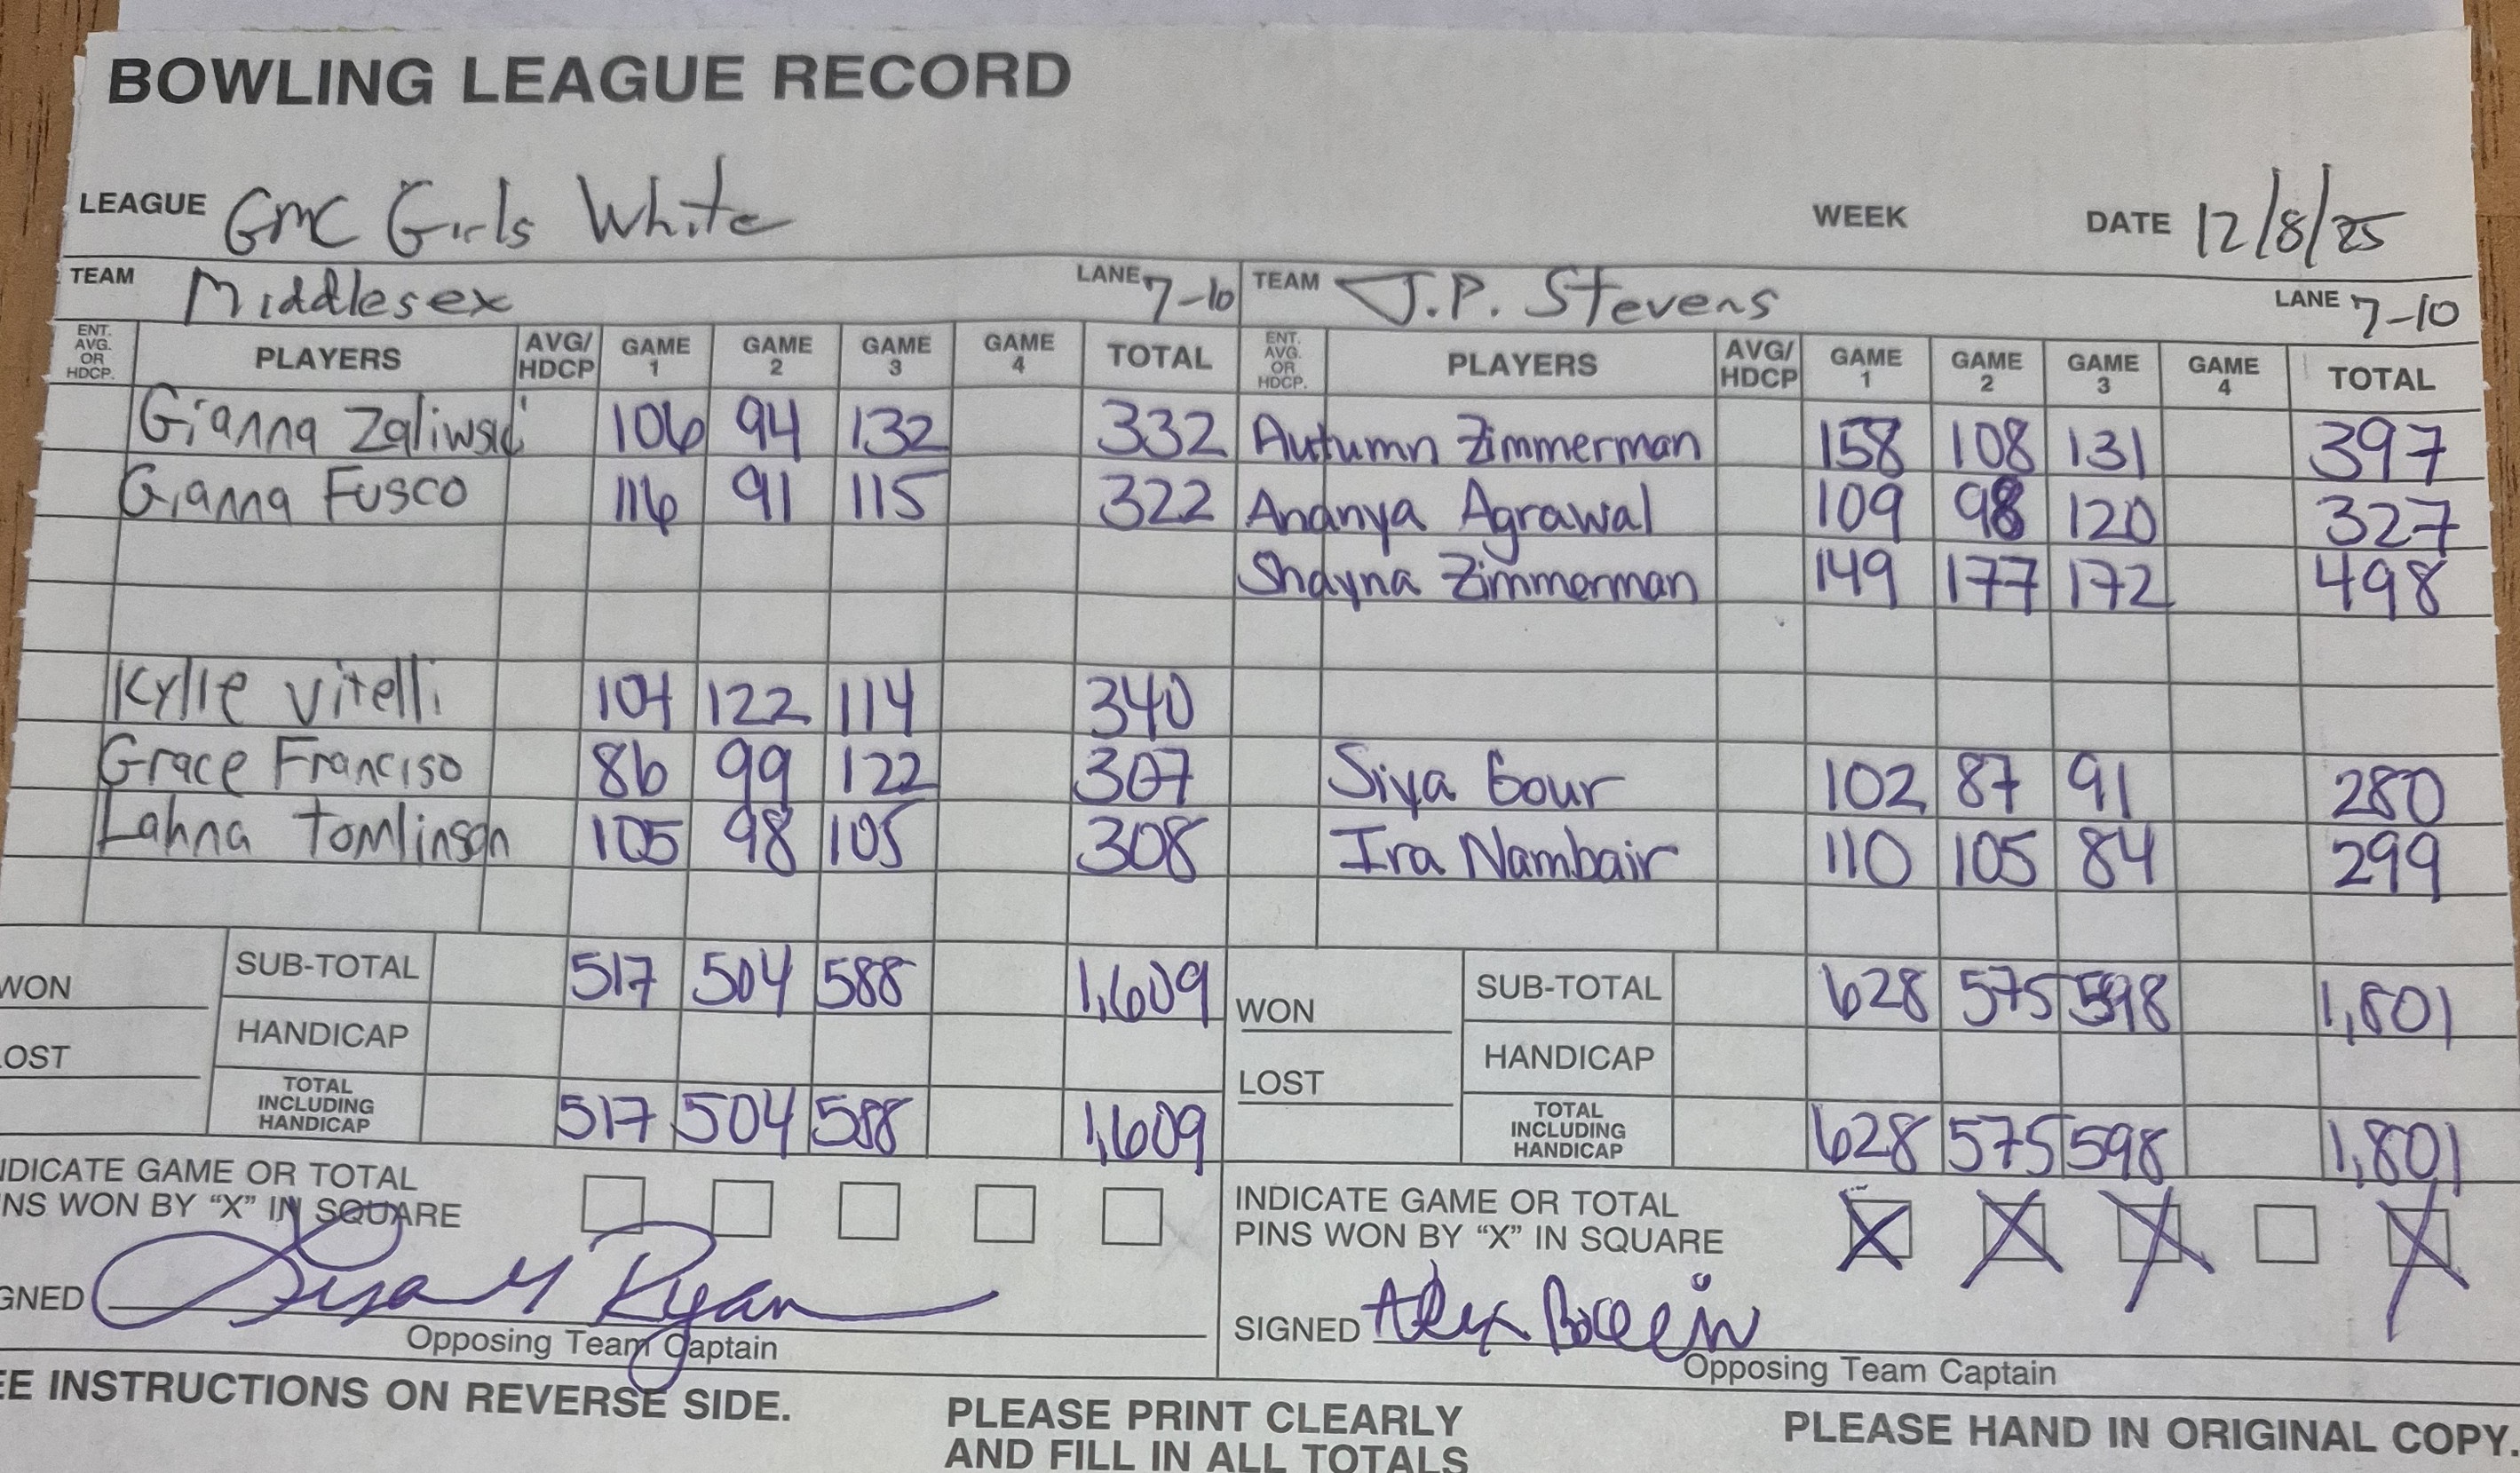 BOWLING LEAGUE RECORD
LEAGUE GMC Girls White WEEK DATE 12/8/25
TEAM Middlesex LANE 7-10 TEAM J.P. Stevens LANE 7-10
ENT. AVG. OR HDCP. PLAYERS AVG/HDCP GAME 1 GAME 2 GAME 3 GAME 4 TOTAL ENT. AVG. OR HDCP. PLAYERS AVG/HDCP GAME 1 GAME 2 GAME 3 GAME 4 TOTAL
Gianna Zaliwski 106 94 132 332 Autumn Zimmerman 158 108 131 397
Gianna Fusco 116 91 115 322 Ananya Agrawal 109 98 120 327
Shayna Zimmerman 149 177 172 498
Kylie Vitelli 104 122 114 340
Grace Franciso 86 99 122 307 Siya Gour 102 87 91 280
Lahna Tomlinson 105 98 105 308 Ira Nambair 110 105 84 299
WON SUB-TOTAL 517 504 588 1,609 WON SUB-TOTAL 628 575 598 1,801
HANDICAP HANDICAP
OST LOST
TOTAL INCLUDING HANDICAP 517 504 588 1,609 TOTAL INCLUDING HANDICAP 628 575 598 1,801
DICATE GAME OR TOTAL INDICATE GAME OR TOTAL
NS WON BY “X” IN SQUARE PINS WON BY “X” IN SQUARE X X X X
GNED Lisa M Ryan SIGNED Alex
Opposing Team Captain Opposing Team Captain
EE INSTRUCTIONS ON REVERSE SIDE. PLEASE PRINT CLEARLY PLEASE HAND IN ORIGINAL COPY.
AND FILL IN ALL TOTALS